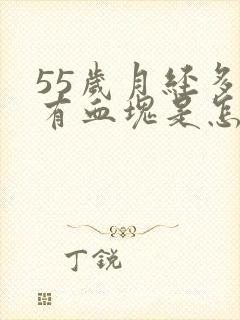 55歲月经多
有血塊是怎
丁銳